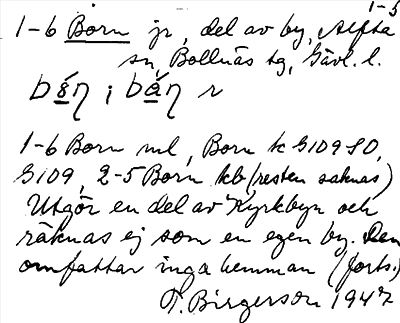 1-5
1-6 Born jr, del av by, Alfta
sn, Bollnäs tg, Gävl. l.
1-6 Born ml, Born k G109 SO,
G109, 2-5 Born kb (resten saknas)
Utgör en del av Kyrkbyn och
räknas ej som en egen by. Den
omfattar inga hemman (forts.)
F. Birgerson 1947